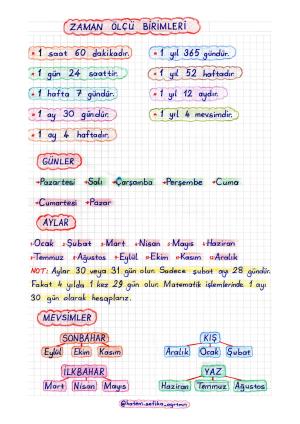 ZAMAN ÖLÇÜ BİRİMLERİ
1 saat 60 dakikadır.
1 yıl 365 gündür.
1 gün 24 saattir.
1 yıl 52 haftadır.
1 hafta 7 gündür.
1 yıl 12 aydır.
1 ay 30 gündür.
1 yıl 4 mevsimdir.
1 ay 4 haftadır.
GÜNLER
→Pazartesi →Salı →Çarşamba →Perşembe →Cuma
→Cumartesi →Pazar
AYLAR
Ocak Şubat Mart Nisan Mayıs Haziran
Temmuz Ağustos Eylül Ekim Kasım Aralık
NOT: Aylar 30 veya 31 gün olur. Sadece şubat ayı 28 gündür.
Fakat 4 yılda 1 kez 29 gün olur. Matematik işlemlerinde 1 ayı
30 gün olarak hesaplarız.
MEVSİMLER
SONBAHAR
Eylül Ekim Kasım
KIŞ
Aralık Ocak Şubat
İLKBAHAR
Mart Nisan Mayıs
YAZ
Haziran Temmuz Ağustos